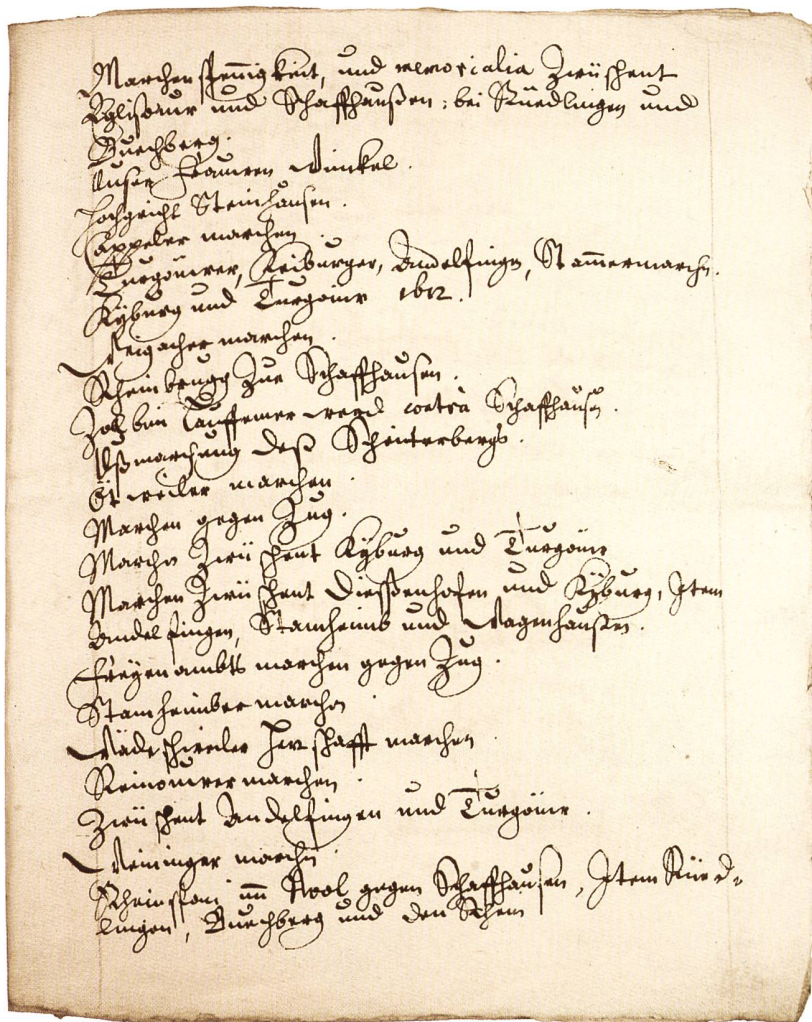 Marchenspennigkeit, und memorialia Zwüschent
Eglisouw und Schaffhaußen: bei Rüedlingen und
Buechberg.
Unser frauwen Winkel.
Hochgricht Steinhausen.
Cappeler marchen.
Turgöuwer, Kiburger, Andelfinger, Stammermarchen.
Kyburg und Turgöuw 1612.
Meigacher marchen.
Rheinbrugg Zue Schaffhausen.
Zoll bim Lauffemer werd contra Schaffhausen.
Ußmarchung deß Schniterbergs.
Otweiler marchen.
Marchen gegen Zug.
Marchen Zwüschent Kyburg und Turgöuw
Marchen Zwüschent Diessenhofen und Kyburg, Item
Andelfingen, Stamheimb und Wagenhausen.
Freyenambts marchen gegen Zug.
Stamheimber marchen
Wädeschweiler Herrschafft marchen
Reinouwer marchen
Zwüschent Andelfingen und Turgöuw.
Weininger marchen
Rheinstrom umb Nool gegen Schaffhausen, Item Rüed-
lingen, Buechberg und den Rhein